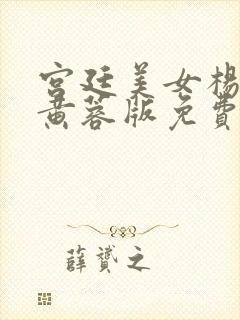 宫廷美女杨
黄蓉版免费
薛赟之